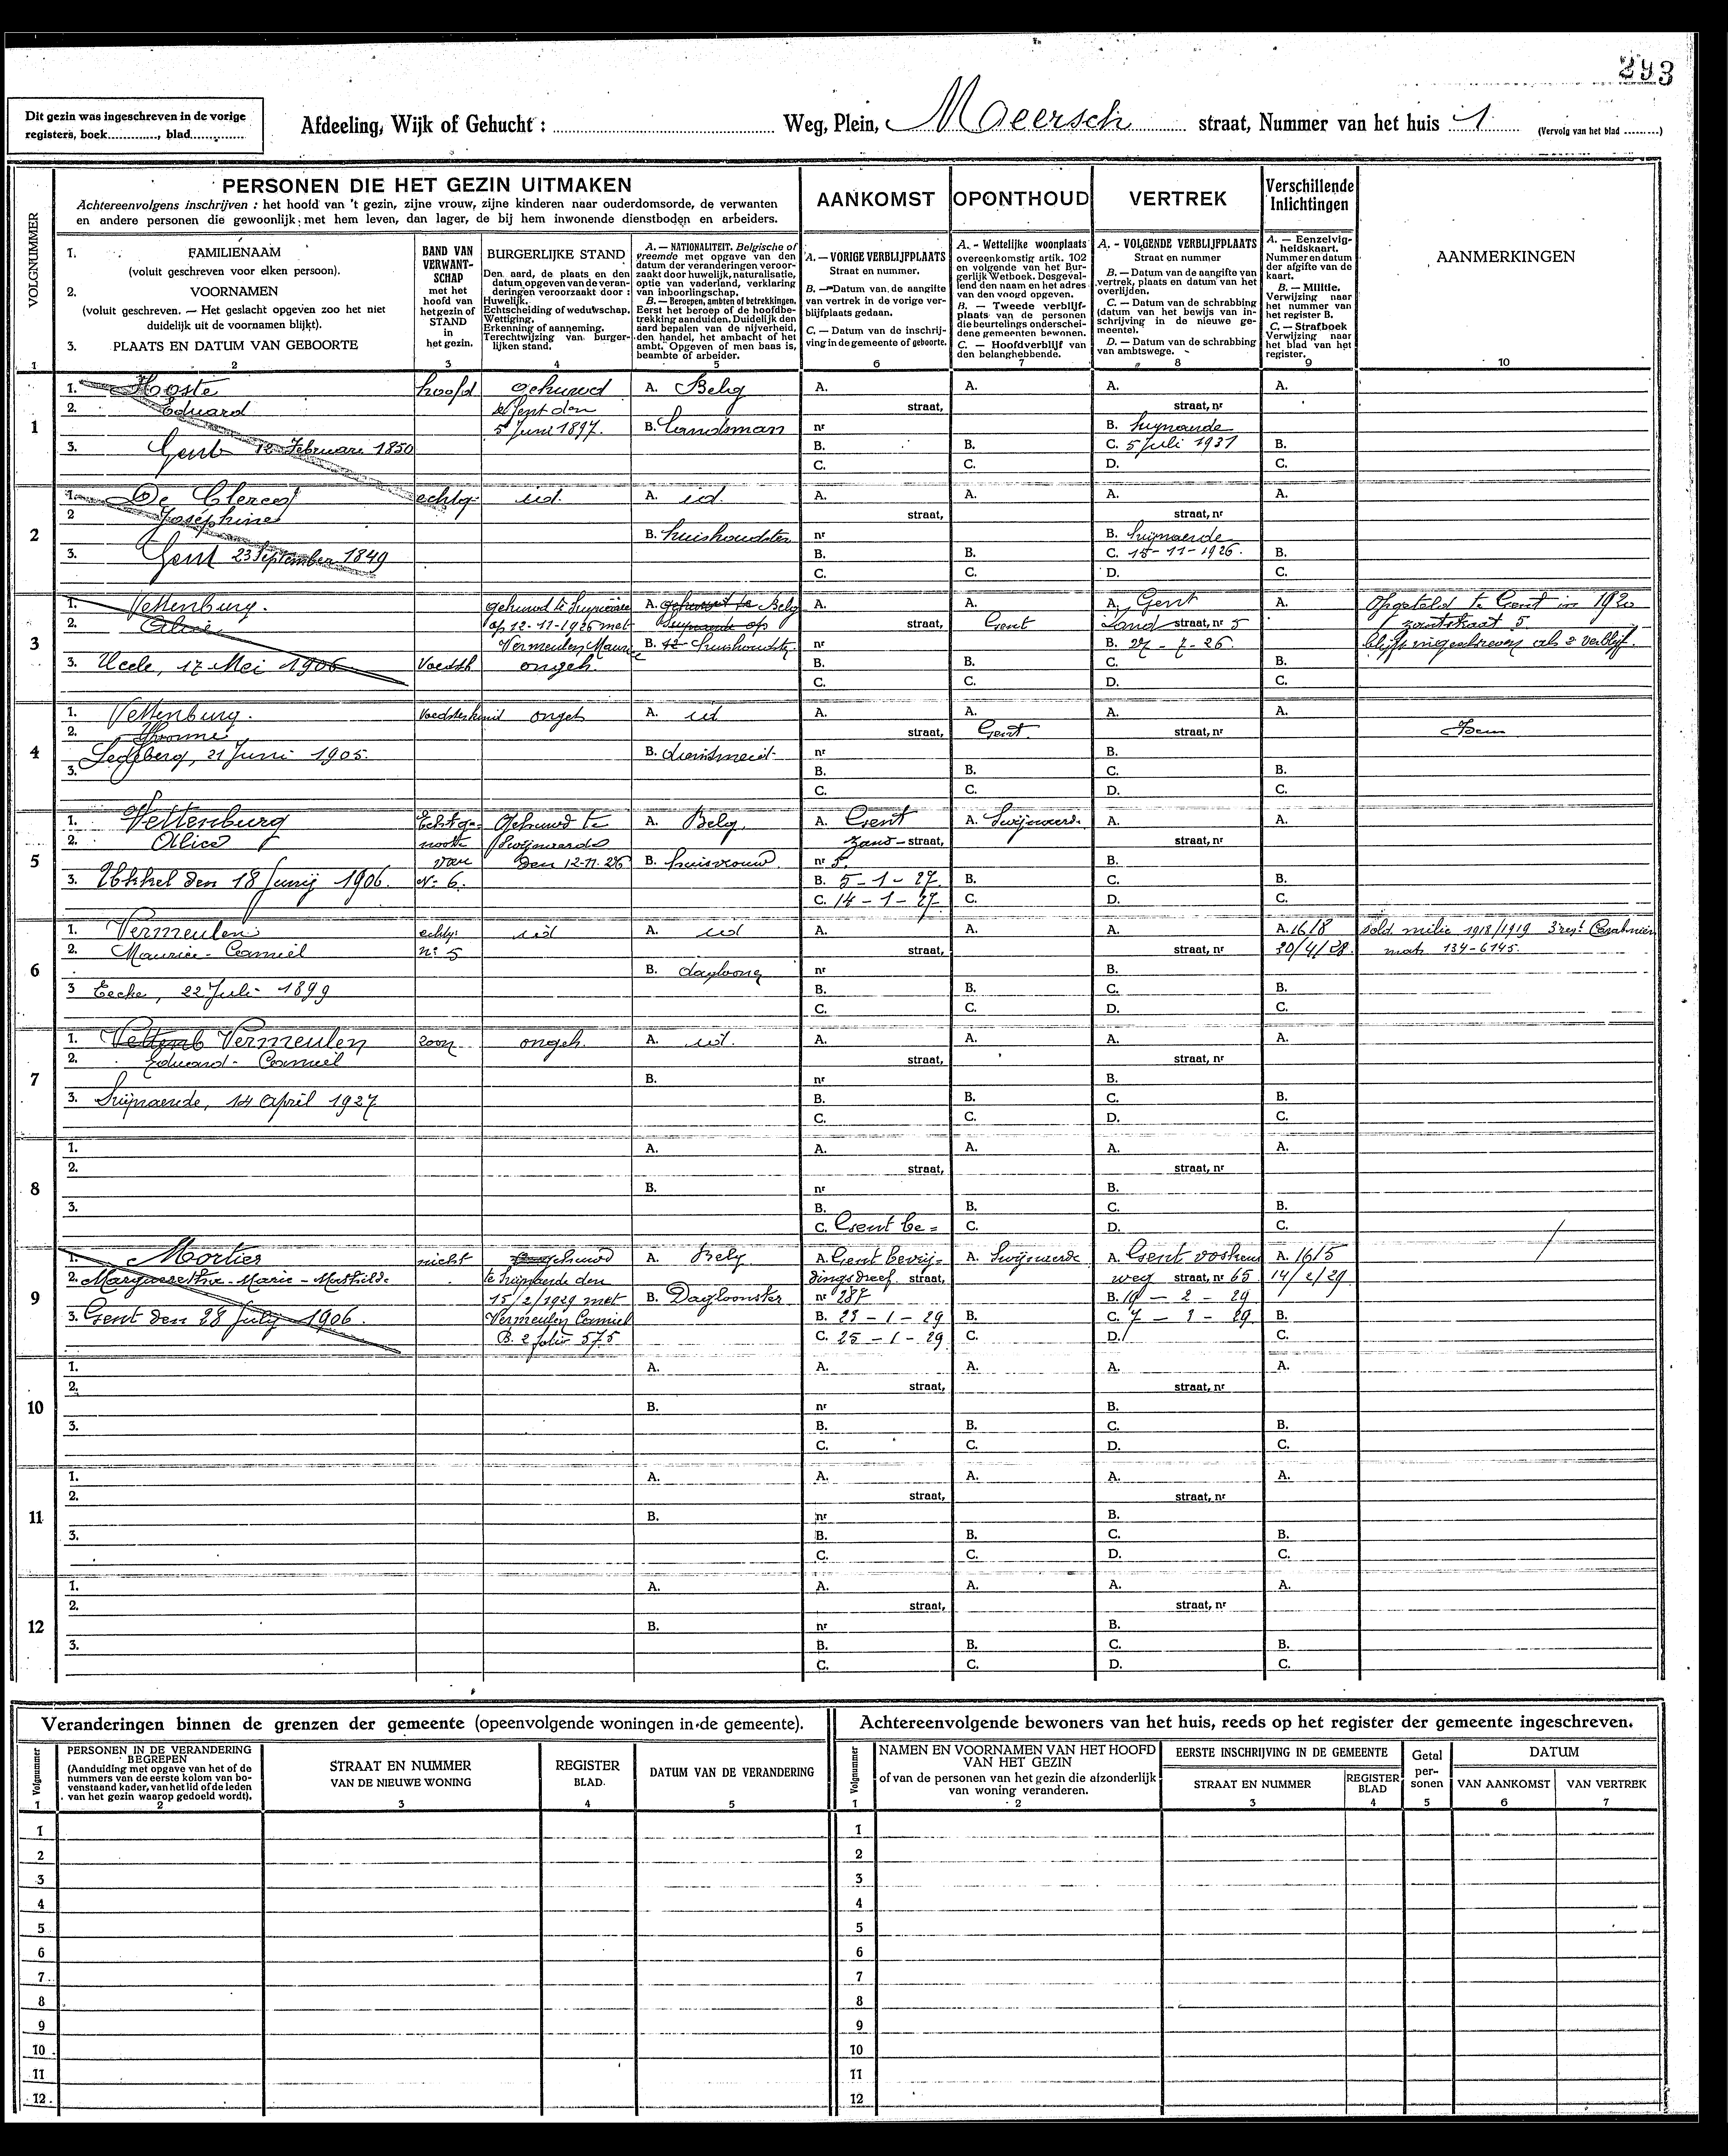 293
Dit gezin was ingeschreven in de vorige
registers, boek............, blad............
Afdeeling, Wijk of Gehucht : Weg, Plein, Meersch straat, Nummer van het huis 1 (Vervolg van het blad .........)
PERSONEN DIE HET GEZIN UITMAKEN
Achtereenvolgens inschrijven : het hoofd van 't gezin, zijne vrouw, zijne kinderen naar ouderdomsorde, de verwanten
en andere personen die gewoonlijk met hem leven, dan lager, de bij hem inwonende dienstboden en arbeiders.
AANKOMST
OPONTHOUD
VERTREK
Verschillende
Inlichtingen
AANMERKINGEN
VOLGNUMMER
1. FAMILIENAAM
(voluit geschreven voor elken persoon).
2. VOORNAMEN
(voluit geschreven. — Het geslacht opgeven zoo het niet
duidelijk uit de voornamen blijkt).
3. PLAATS EN DATUM VAN GEBOORTE
BAND VAN
VERWANT-
SCHAP
met het
hoofd van
het gezin of
STAND
in
het gezin.
BURGERLIJKE STAND
Den aard, de plaats en den
datum opgeven van de veran-
deringen veroorzaakt door :
Huwelijk.
Echtscheiding of weduwschap.
Wettiging.
Erkenning of aanneming.
Terechtwijzing van burger-
lijken stand.
A. — NATIONALITEIT. Belgische of
vreemde met opgave van den
datum der veranderingen veroor-
zaakt door huwelijk, naturalisatie,
optie van vaderland, verklaring
van inboorlingschap.
B. — Beroepen, ambten of betrekkingen.
Eerst het beroep of de hoofdbe-
trekking aanduiden. Duidelijk den
aard bepalen van de nijverheid,
den handel, het ambacht of het
ambt. Opgeven of men baas is,
beambte of arbeider.
A. — VORIGE VERBLIJFPLAATS
Straat en nummer.
B. — Datum van de aangifte
van vertrek in de vorige ver-
blijfplaats gedaan.
C. — Datum van de inschrij-
ving in de gemeente of geboorte.
A. - Wettelijke woonplaats
overeenkomstig artik. 102
en volgende van het Bur-
gerlijk Wetboek. Desgeval-
lend den naam en het adres
van den voogd opgeven.
B. — Tweede verblijf-
plaats van de personen
die beurtelings onderschei-
dene gemeenten bewonen.
C. — Hoofdverblijf van
den belanghebbende.
A. - VOLGENDE VERBLIJFPLAATS
Straat en nummer
B. — Datum van de aangifte van
vertrek, plaats en datum van het
overlijden.
C. — Datum van de schrabbing
(datum van het bewijs van in-
schrijving in de nieuwe ge-
meente).
D. — Datum van de schrabbing
van ambtswege.
A. — Eenzelvig-
heidskaart.
Nummer en datum
der afgifte van de
kaart.
B. — Militie.
Verwijzing naar
het nummer van
het register B.
C. — Strafboek
Verwijzing naar
het blad van het
register.
1 2 3 4 5 6 7 8 9 10
1
1. Hoste hoofd gehuwd A. Belg A. A. A. A.
2. Eduard te Gent den straat, straat, nr
5 Juni 1897. B. landsman nr B. Swijnaerde
3. Gent 12 Februari 1850 B. B. C. 5 Juli 1931 B.
C. C. D. C.
2
1. De Clercq echtg. id. A. id. A. A. A. A.
2 Joséphine straat, straat, nr
B. huishoudster nr B. Swijnaerde
3. Gent 23 September 1849 B. B. C. 15-11-1926. B.
C. C. D. C.
3
1. Vettenburg. gehuwd te Swijnaerde A. Belg A. A. A. Gent A. Opgesteld te Gent in 1920
2. Alice op 12-11-1926 met straat, Gent Zand straat, nr 5 zandstraat 5
Vermeulen Maurice B. huishoudstr. nr B. 27-7-26. blijft ingeschreven als 2 verblijf.
3. Ucele, 17 Mei 1906 Voedsk. ongeh. B. B. C. B.
C. C. D. C.
4
1. Vettenburg. Voedsterkind ongeh A. id A. A. A. A.
2. straat, Gent. straat, nr Idem
Ledeberg, 21 Juni 1905. B. dienstmeid. nr B.
3. B. B. C. B.
C. C. D. C.
5
1. Vettenburg Echtge- Gehuwd te A. Belg. A. Gent A. Swijnaerde A. A.
2. Alice noote Swijnaerde zand - straat, straat, nr
van den 12-11-26 B. huisvrouw nr 5. B.
3. Ukkel den 18 Junij 1906. N: 6. B. 5-1-27. B. C. B.
C. 14-1-27. C. D. C.
6
1. Vermeulen echtg: id A. id A. A. A. A. 1618 sold. milic 1918/1919 3 regt Carabniers
2. Maurice - Camiel n: 5 straat, straat, nr 30/4/28. mat. 134-6145.
B. dagloong nr B.
3 Eecke, 22 Juli 1899 B. B. C. B.
C. C. D. C.
7
1. Vettenb Vermeulen zoon ongeh. A. id. A. A. A. A.
2. Eduard - Camiel straat, straat, nr
B. nr B.
3. Swijnaerde, 14 April 1927 B. B. C. B.
C. C. D. C.
8
1. A. A. A. A. A.
2. straat, straat, nr
B. nr B.
3. B. B. C. B.
C. Gent be = C. D. C.
9
1. Mortier nicht gehuwd A. Belg A. Gent Bevrij- A. Swijnaerde A. Gent voskens A. 1615
2. Marguerethe - Marie - Mathilde te Swijnaerde den dingsdreef. straat, weg straat, nr 65 14/2/29
15/2/1929 met B. Dagloonster nr 287 B. 19-2-29
3. Gent den 28 July 1906. Vermeulen Camiel B. 23-1-29 B. C. 7-3-29 B.
B. 2 folio 575 C. 25-1-29 C. D. C.
10
1. A. A. A. A. A.
2. straat, straat, nr
B. nr B.
3. B. B. C. B.
C. C. D. C.
11
1. A. A. A. A. A.
2. straat, straat, nr
B. nr B.
3. B. B. C. B.
C. C. D. C.
12
1. A. A. A. A. A.
2. straat, straat, nr
B. nr B.
3. B. B. C. B.
C. C. D. C.
Veranderingen binnen de grenzen der gemeente (opeenvolgende woningen in de gemeente).
Volgnummer
PERSONEN IN DE VERANDERING
BEGREPEN
(Aanduiding met opgave van het of de
nummers van de eerste kolom van bo-
venstaand kader, van het lid of de leden
van het gezin waarop gedoeld wordt).
STRAAT EN NUMMER
VAN DE NIEUWE WONING
REGISTER
BLAD.
DATUM VAN DE VERANDERING
1 2 3 4 5
1
2
3
4
5
6
7
8
9
10
11
12
Achtereenvolgende bewoners van het huis, reeds op het register der gemeente ingeschreven.
Volgnummer
NAMEN EN VOORNAMEN VAN HET HOOFD
VAN HET GEZIN
of van de personen van het gezin die afzonderlijk
van woning veranderen.
EERSTE INSCHRIJVING IN DE GEMEENTE
STRAAT EN NUMMER
REGISTER
BLAD
Getal
per-
sonen
DATUM
VAN AANKOMST
VAN VERTREK
1 2 3 4 5 6 7
1
2
3
4
5
6
7
8
9
10
11
12